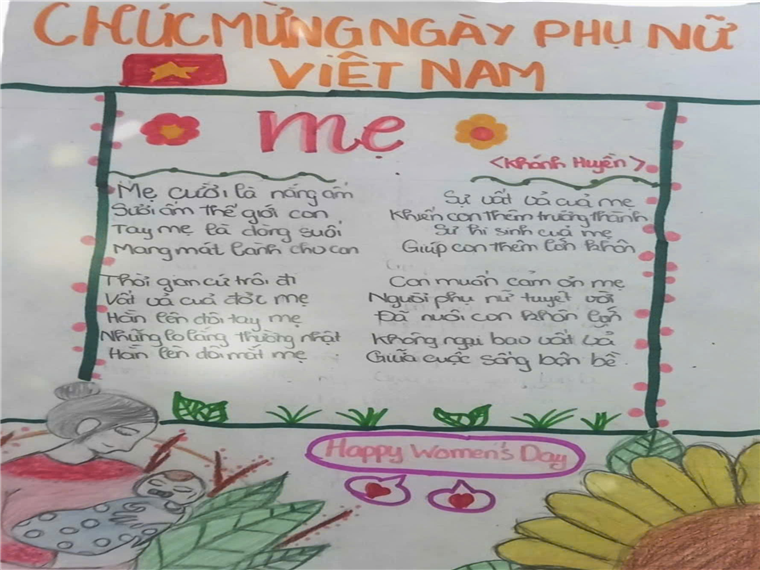 CHÚC MỪNG NGÀY PHỤ NỮ
VIỆT NAM
mẹ
<Khánh Huyền>
Mẹ cười là nắng ấm
Sưởi ấm thế giới con
Tay mẹ là dòng suối
Mang mát lành cho con
Thời gian cứ trôi đi
Vất vả cuả đời mẹ
Hằn lên đôi tay mẹ
Những lo lắng thường nhật
Hằn lên đôi mắt mẹ
Sự vất vả cuả mẹ
Khiến con thêm trưởng thành
Sự hi sinh cuả mẹ
Giúp con thêm lớn khôn
Con muốn cảm ơn mẹ
Người phụ nữ tuyệt vời
Đã nuôi con khôn lớn
Không ngại bao vất vả
Giữa cuộc sống bộn bề
Happy Women's Day